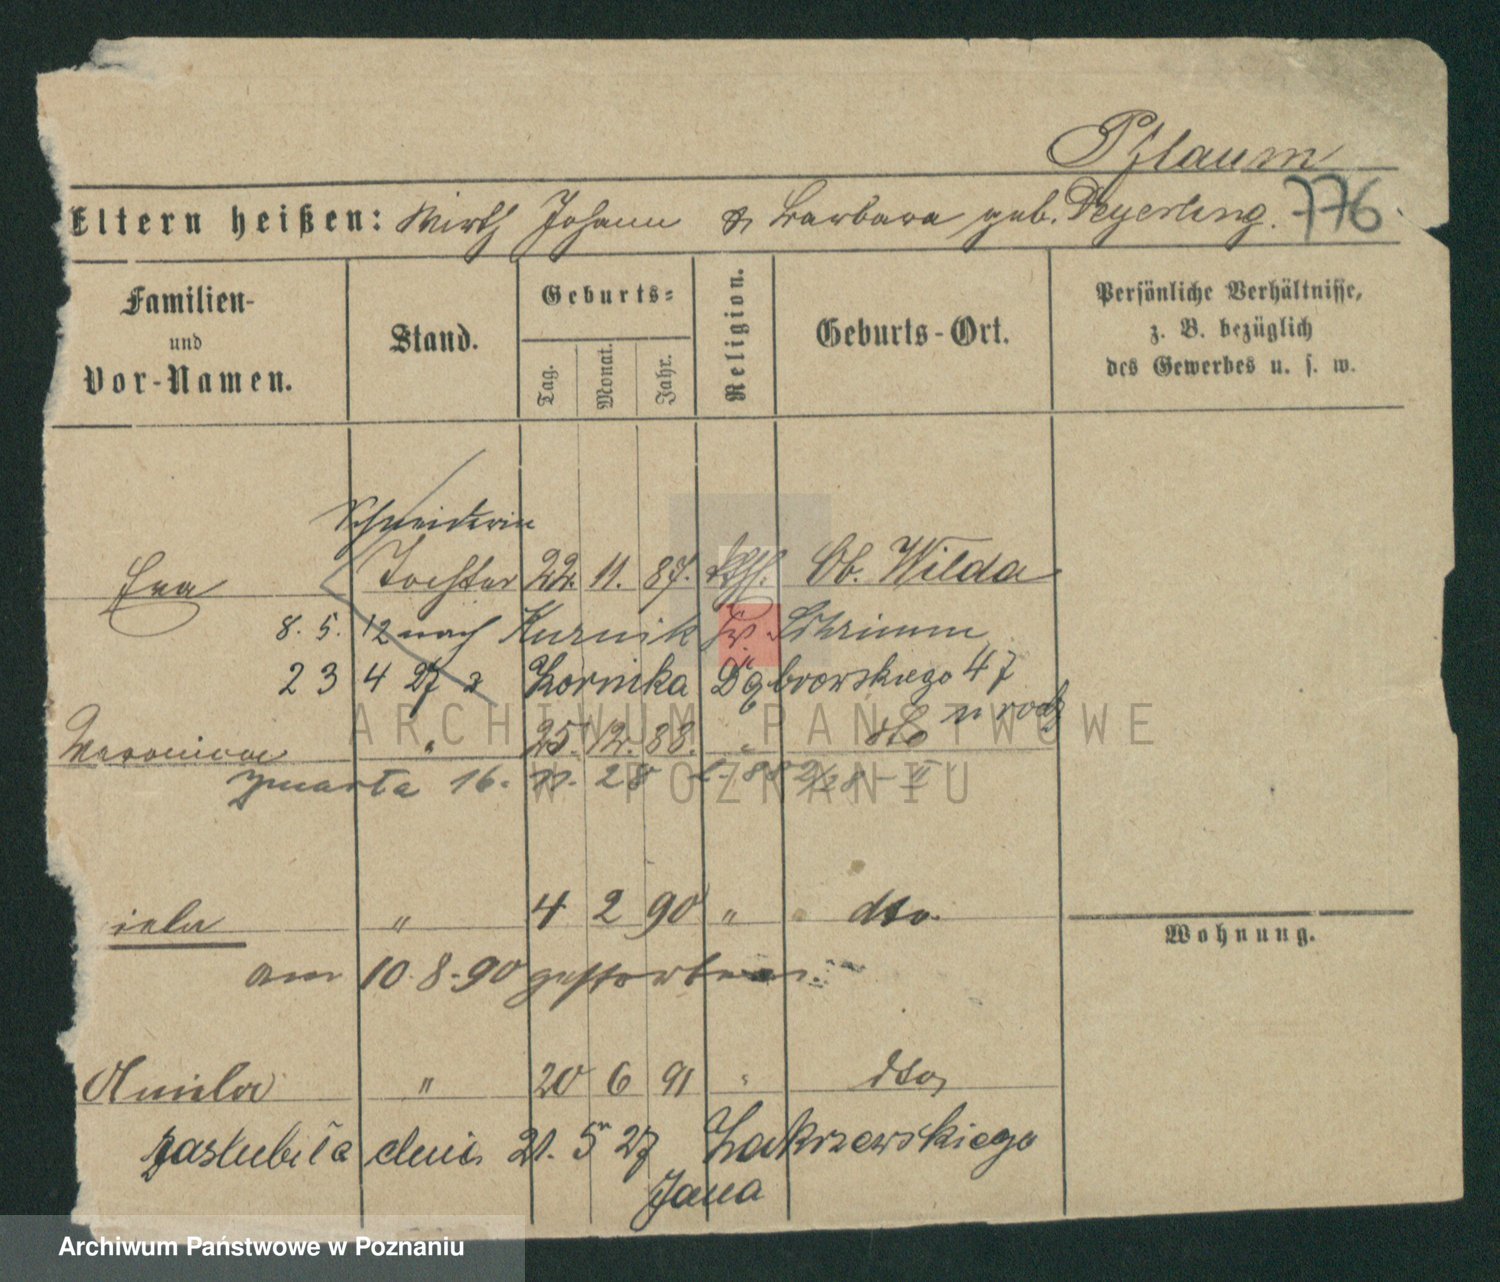 Pflaum
Eltern heißen: Wirth Johann & Barbara geb. Deyerling. 776
Familien-
und
Vor-Namen.
Stand.
Geburts-
Tag.
Monat.
Jahr.
Religion.
Geburts-Ort.
Persönliche Verhältnisse,
z. B. bezüglich
des Gewerbes u. s. w.
Schneiderin
Eva Tochter 22. 11. 87. kth. Ob. Wilda
8. 5. 12 nach Kurnik Kr. Schrimm
23 4 27 z Dąbrowskiego 47
Veronica " 25. 12. 88. " dto
zmarła 16. 11. 28
iela " 4 2 90 " dto.
am 10.8.90 gestorben.
Wohnung.
Aniela " 20 6 91 " dto,
zaślubiła dnia 21. 5 27 Zakrzewskiego
Jana
ARCHIWUM PAŃSTWOWE
W POZNANIU
Archiwum Państwowe w Poznaniu